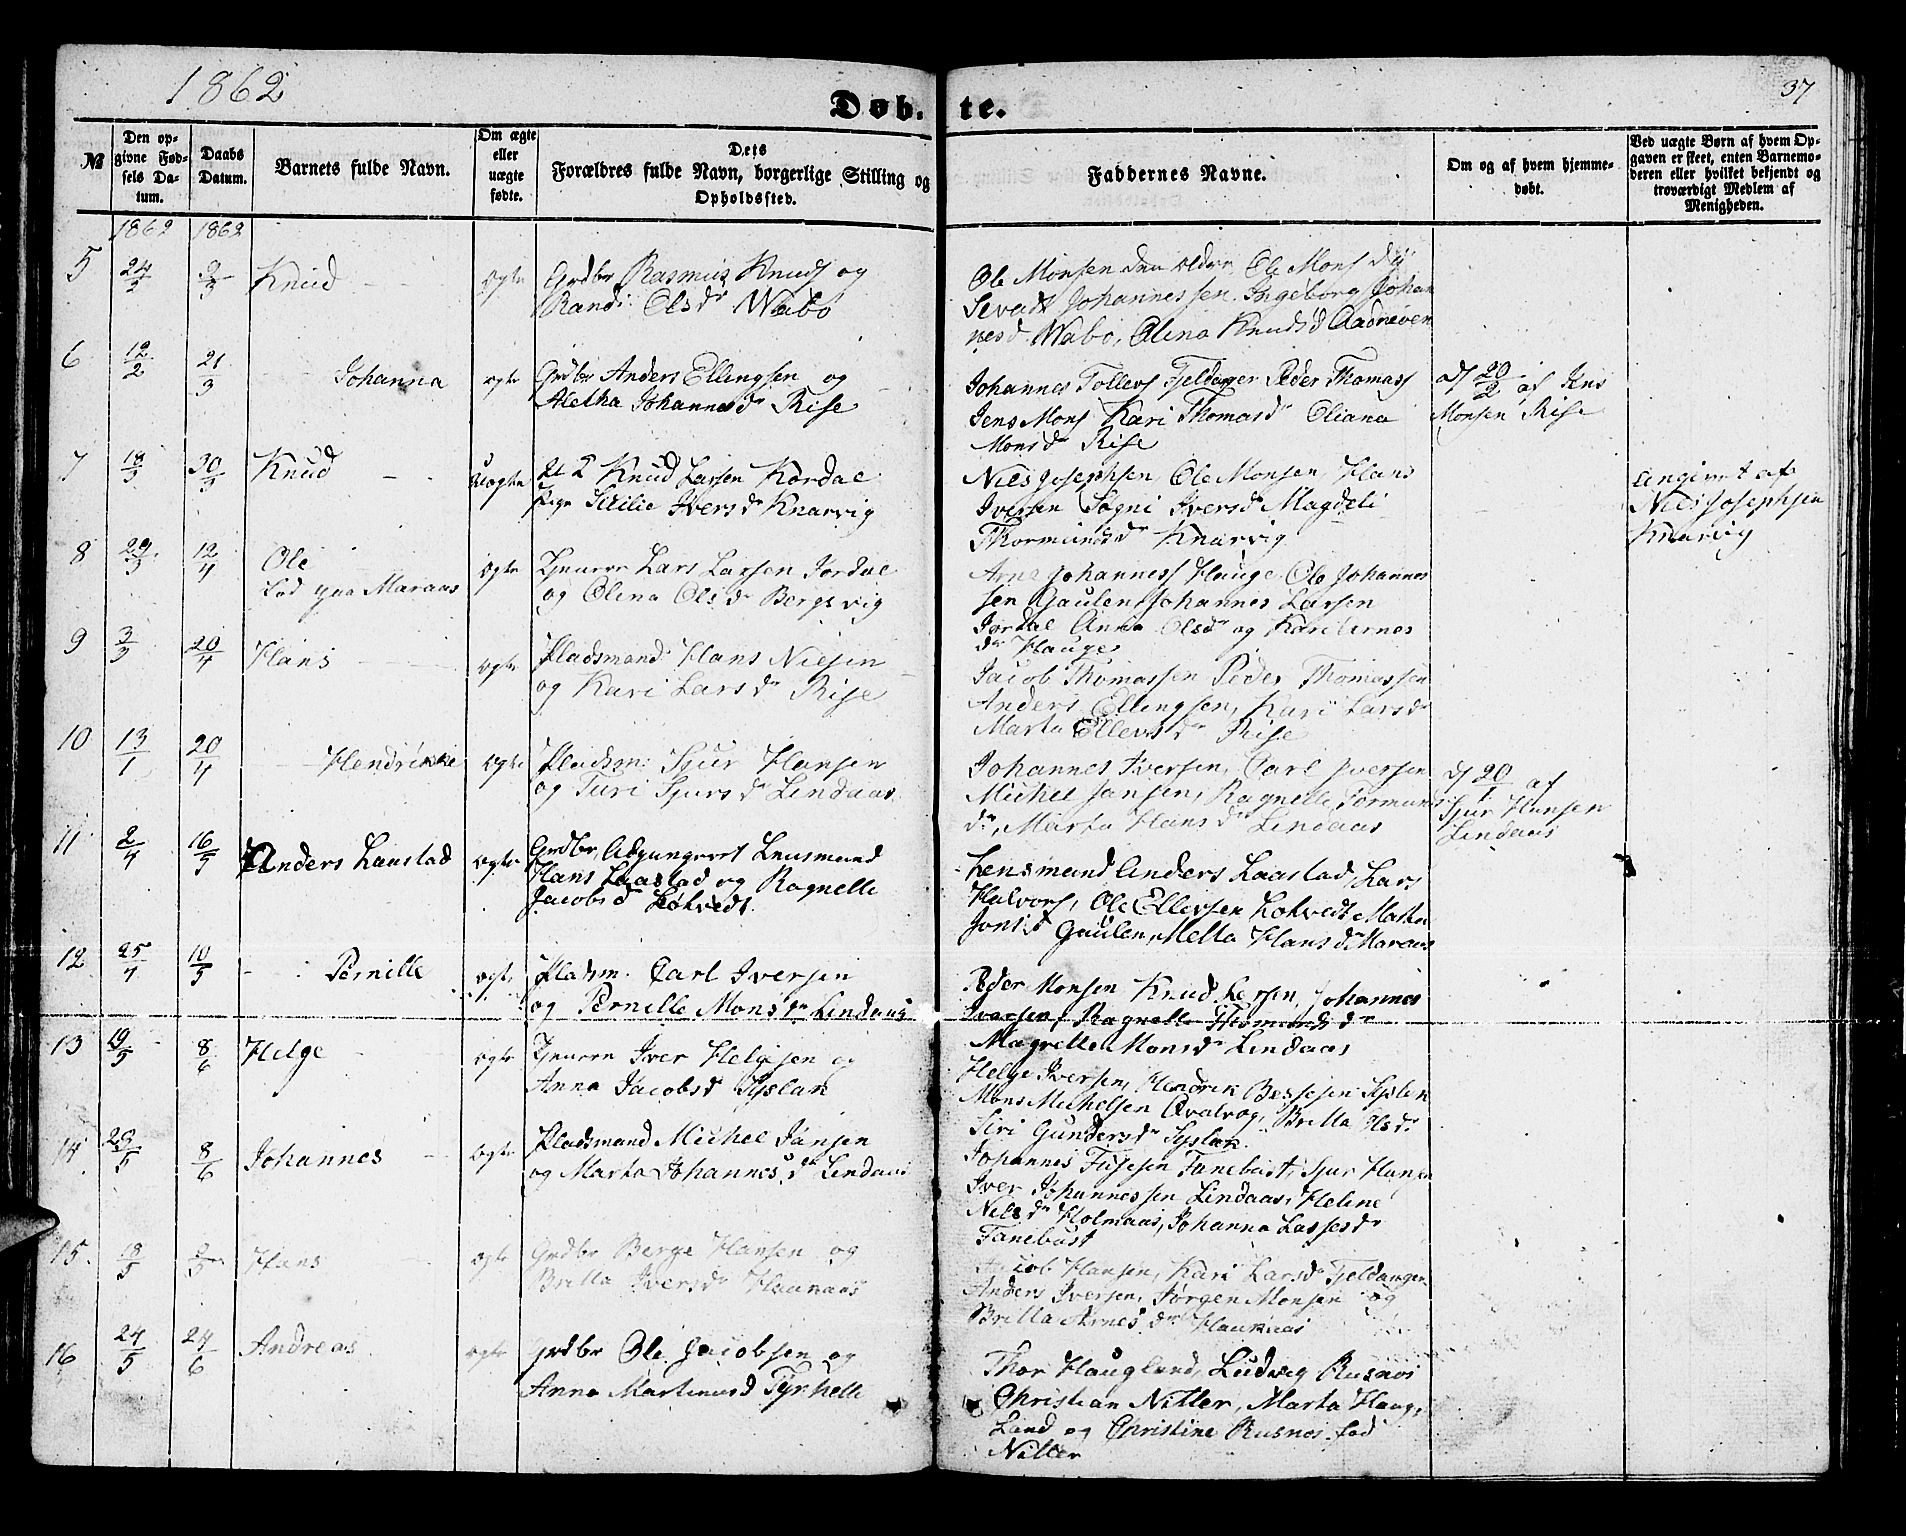 1862
Døb- te.
37
№
Den op-
givne Fød-
sels Da-
tum.
Daabs
Datum.
Barnets fulde Navn.
Om ægte
eller
uægte
fødte.
Dets
Forældres fulde Navn, borgerlige Stilling og
Opholdssted.
Faddernes Navne.
Om og af hvem hjemme-
døbt.
Ved uægte Børn af hvem Op-
gaven er skeet, enten Barnemo-
deren eller hvilket bekjendt og
troværdigt Medlem af
Menigheden.
1862 1862
5 24/2 9/3 Knud ægte Grdbr Rasmus Knuds og
Randi Olsdr Wabø
Ole Monsen den ældre Ole Mons
Sevadt Johannessen Ingeborg Johan
nesd. Wabø, Olina Knudsd
6 12/2 21/3 Johanna ægte Grdbr Anders Ellingsen og
Aletha Johannesdr Rise
Johannes Tollevs Fjeldanger Peder Thomass
Jens Mons Kari Thomasdr Oliana
Monsdr Rise
20/2 af Jens
Monsen Rise
7 18/3 30/3 Knud uægte Knud Larsen Kordal
Pige Sicilie Iversdr Knarvig
Niels Josephsen Ole Monsen, Hans
Iversen Søgni Iversdr Magdeli
Thormundsdr Knarvig
Angivet af
Niels Josephsen
Knarvig
8 29/3 12/4 Ole
Fød paa Maraas
ægte Tjenere Lars Larsen Jordal
og Olina Olsdr Bergsvig
Arne Johanness Hauge Ole Johannes
sen Gaulen Johannes Larsen
Jordal Anna Olsdr og Kari Arnes
dr Hauge
9 3/3 20/4 Hans ægte Pladsmand Hans Nielsen
og Kari Larsdr Rise
Jacob Thomassen Peder Thomassen
Anders Ellingsen, Kari Larsdr
Marta Ellevsdr Rise
10 13/1 20/4 Hendrikke ægte Pladsm: Sjur Hansen
og Turi Sjursdr Lindaas
Johannes Iversen, Carl Iversen
Michel Jansen, Ragnelle Tormunds
dr, Marta Hansdr Lindaas
20/1 af
Sjur Hansen
Lindaas
11 2/4 16/5 Anders Laastad ægte Grdbr, Adjungeret Lensmand
Hans Laastad og Ragnelle
Jacobsd Løtvedt
Lensmand Anders Laastad, Lars
Halvors, Ole Ellevsen Løtvedt Marta
Jonsd Gaulen, Metta Hansdr Maraas
12 25/4 10/5 Pernille ægte Pladsm. Carl Iversen
og Pernille Monsdr Lindaas
Peder Monsen Knud Larsen, Johannes
Iversen, Ragnelle Thormundsdr
Magrelle Monsdr Lindaas
13 19/5 8/6 Helge ægte Tjenere Iver Helgesen og
Anna Jacobsd Syslak
Helge Iversen, Hendrik Bessesen Syslak
Mons Michelsen Qvalvog, Britta Olsdr
Siri Gundersdr Syslak
14 29/5 8/6 Johannes ægte Pladsmand Michel Jansen
og Marta Johannesdr Lindaas
Johannes Tanebust, Sjur Hansen
Iver Johannessen Lindaas, Heline
Nilsdr Holmaas, Johanna Lassesdr
Tanebust
15. 18/5 Hans ægte Grdbr Berge Hansen og
Britta Iversdr Haukaas
Jacob Hansen, Kari Larsdr Fjeldanger
Anders Iversen, Jørgen Monsen og
Britta Arnesdr Haukaas
16 24/5 24/6 Andreas ægte Grdbr Ole Jacobsen og
Anna Martinusd
Thor Haugland, Ludvig Rusnøs
Christian Nitter, Marta Haug-
land og Christine Rusnøs fød
Nitter